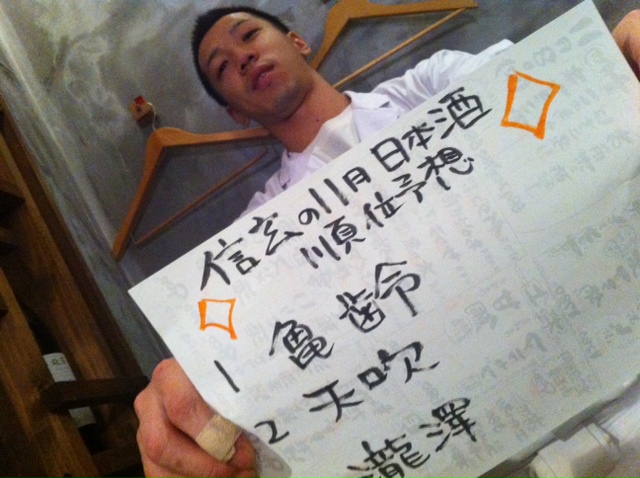 信玄の11月日本酒
順位予想
1 亀齢
2 天吹
瀧澤